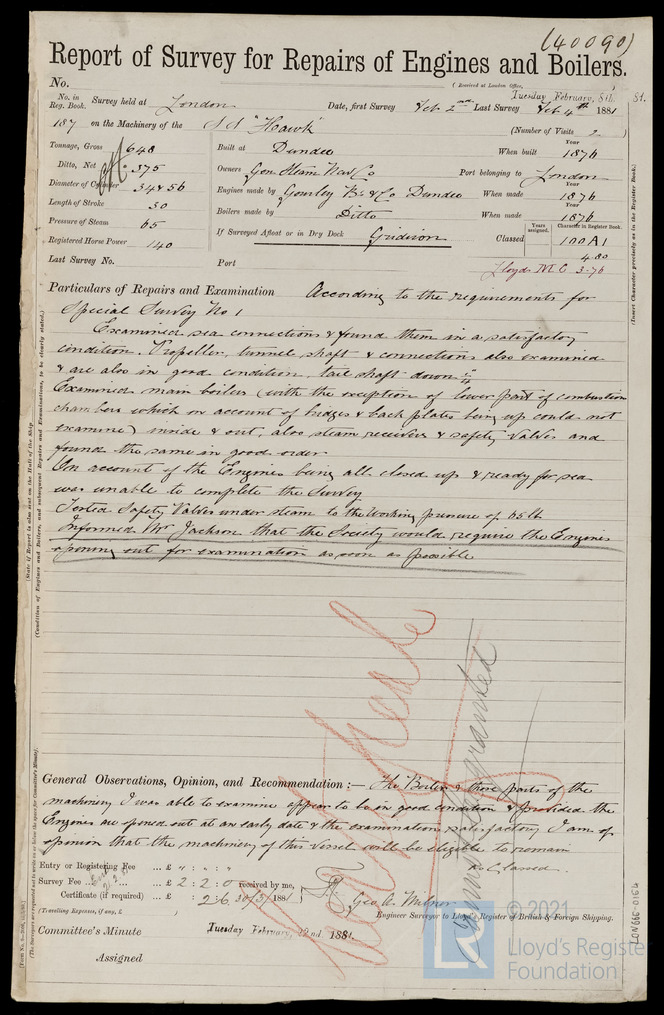 (40090)
Report of Survey for Repairs of Engines and Boilers.
No.
(Received at London Office,
Tuesday February, 8th 1881
No. in Reg. Book. Survey held at London Date, first Survey Feb 2nd Last Survey Feb 4th 1881
187 on the Machinery of the SS "Hawk" (Number of Visits 2)
Tonnage, Gross 648 Built at Dundee When built Year 1876
Ditto, Net 375 Owners Gen Steam Nav Co Port belonging to London
Diameter of Cylinder 34 & 56 Engines made by Gourley Bs & Co Dundee When made Year 1876
Length of Stroke 30 Boilers made by Ditto When made Year 1876
Pressure of Steam 65
Registered Horse Power 140 If Surveyed Afloat or in Dry Dock Gridiron Classed Years assigned. Character in Register Book. 100A1
4.80
Last Survey No. Port Lloyds MC 3-76
Particulars of Repairs and Examination According to the requirements for
Special Survey No 1
Examined sea connections & found them in a satisfactory
condition. Propeller, tunnel shaft & connections also examined
& are also in good condition, tail shaft down
Examined main boilers (with the exception of lower part of combustion
chambers which on account of bridges & back plates being up could not
examine) inside & out, also steam receivers & safety valves and
found the same in good order
On account of the Engines being all closed up & ready for sea
was unable to complete the Survey
Tested Safety Valves under steam to the working pressure of 65 lb
Informed Mr Jackson that the Society would require the Engines
opening out for examination as soon as possible
General Observations, Opinion, and Recommendation :— The Boilers & those parts of the
machinery I was able to examine appear to be in good condition & provided the
Engines are opened out at an early date & the examination satisfactory I am of
opinion that the machinery of this vessel will be eligible to remain
as Classed.
Entry or Registering Fee ... £ " : " : "
Survey Fee ... £ 2 : 2 : 0 received by me,
Certificate (if required) ... £ : 2 : 6 188
(Travelling Expenses, if any, £ )
Geo. A. Milner
Engineer Surveyor to Lloyd's Register of British & Foreign Shipping.
Committee's Minute Tuesday February, 22nd 1881.
Assigned
(Insert Character precisely as in the Register Book.)
LON666-0164
© 2021
LR
Lloyd's Register
Foundation